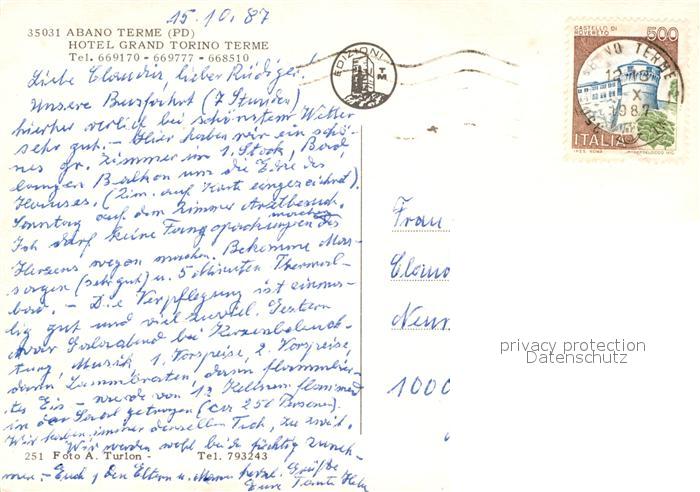 15.10.87
35031 ABANO TERME (PD)
HOTEL GRAND TORINO TERME
Tel. 669170 - 669777 - 668510
EDIZIONI
CASTELLO DI ROVERETO
500
ABANO TERME
12
X
1987
ITALIA
Liebe Claudia, lieber Rüdiger!
Unsere Busfahrt (7 Stunden)
hierher verlief bei schönstem Wetter
sehr gut. – Hier haben wir ein schö-
nes gr. Zimmer im 1. Stock, Bad,
langen Balkon um die Ecke des
Hauses. (Zim. auf Karte eingezeichnet).
Sonntag auf dem Zimmer Arztbesuch.
Ich darf keine Fangopackungen machen des
Herzens wegen machen. Bekomme Mas-
sagen (sehr gut) u. 5 Minuten Thermal-
bad. – Die Verpflegung ist einma-
lig gut und viel zuviel. Gestern
war Galaabend bei Kerzenbeleuch-
tung, Musik, 1. Vorspeise, 2. Vorspeise
dann Lammbraten, dann flambier-
tes Eis – wurde von 12 Kellnern flammend
in den Saal getragen (ca 250 Personen).
Wir haben immer denselben Tisch, zu zweit.
Wir werden wohl beide tüchtig zuneh-
men. – Euch, den Eltern u. herzl. Grüße
Eure Tante
Frau
Claud
Neur
1000
251 Foto A. Turlon - Tel. 793243
privacy protection
Datenschutz